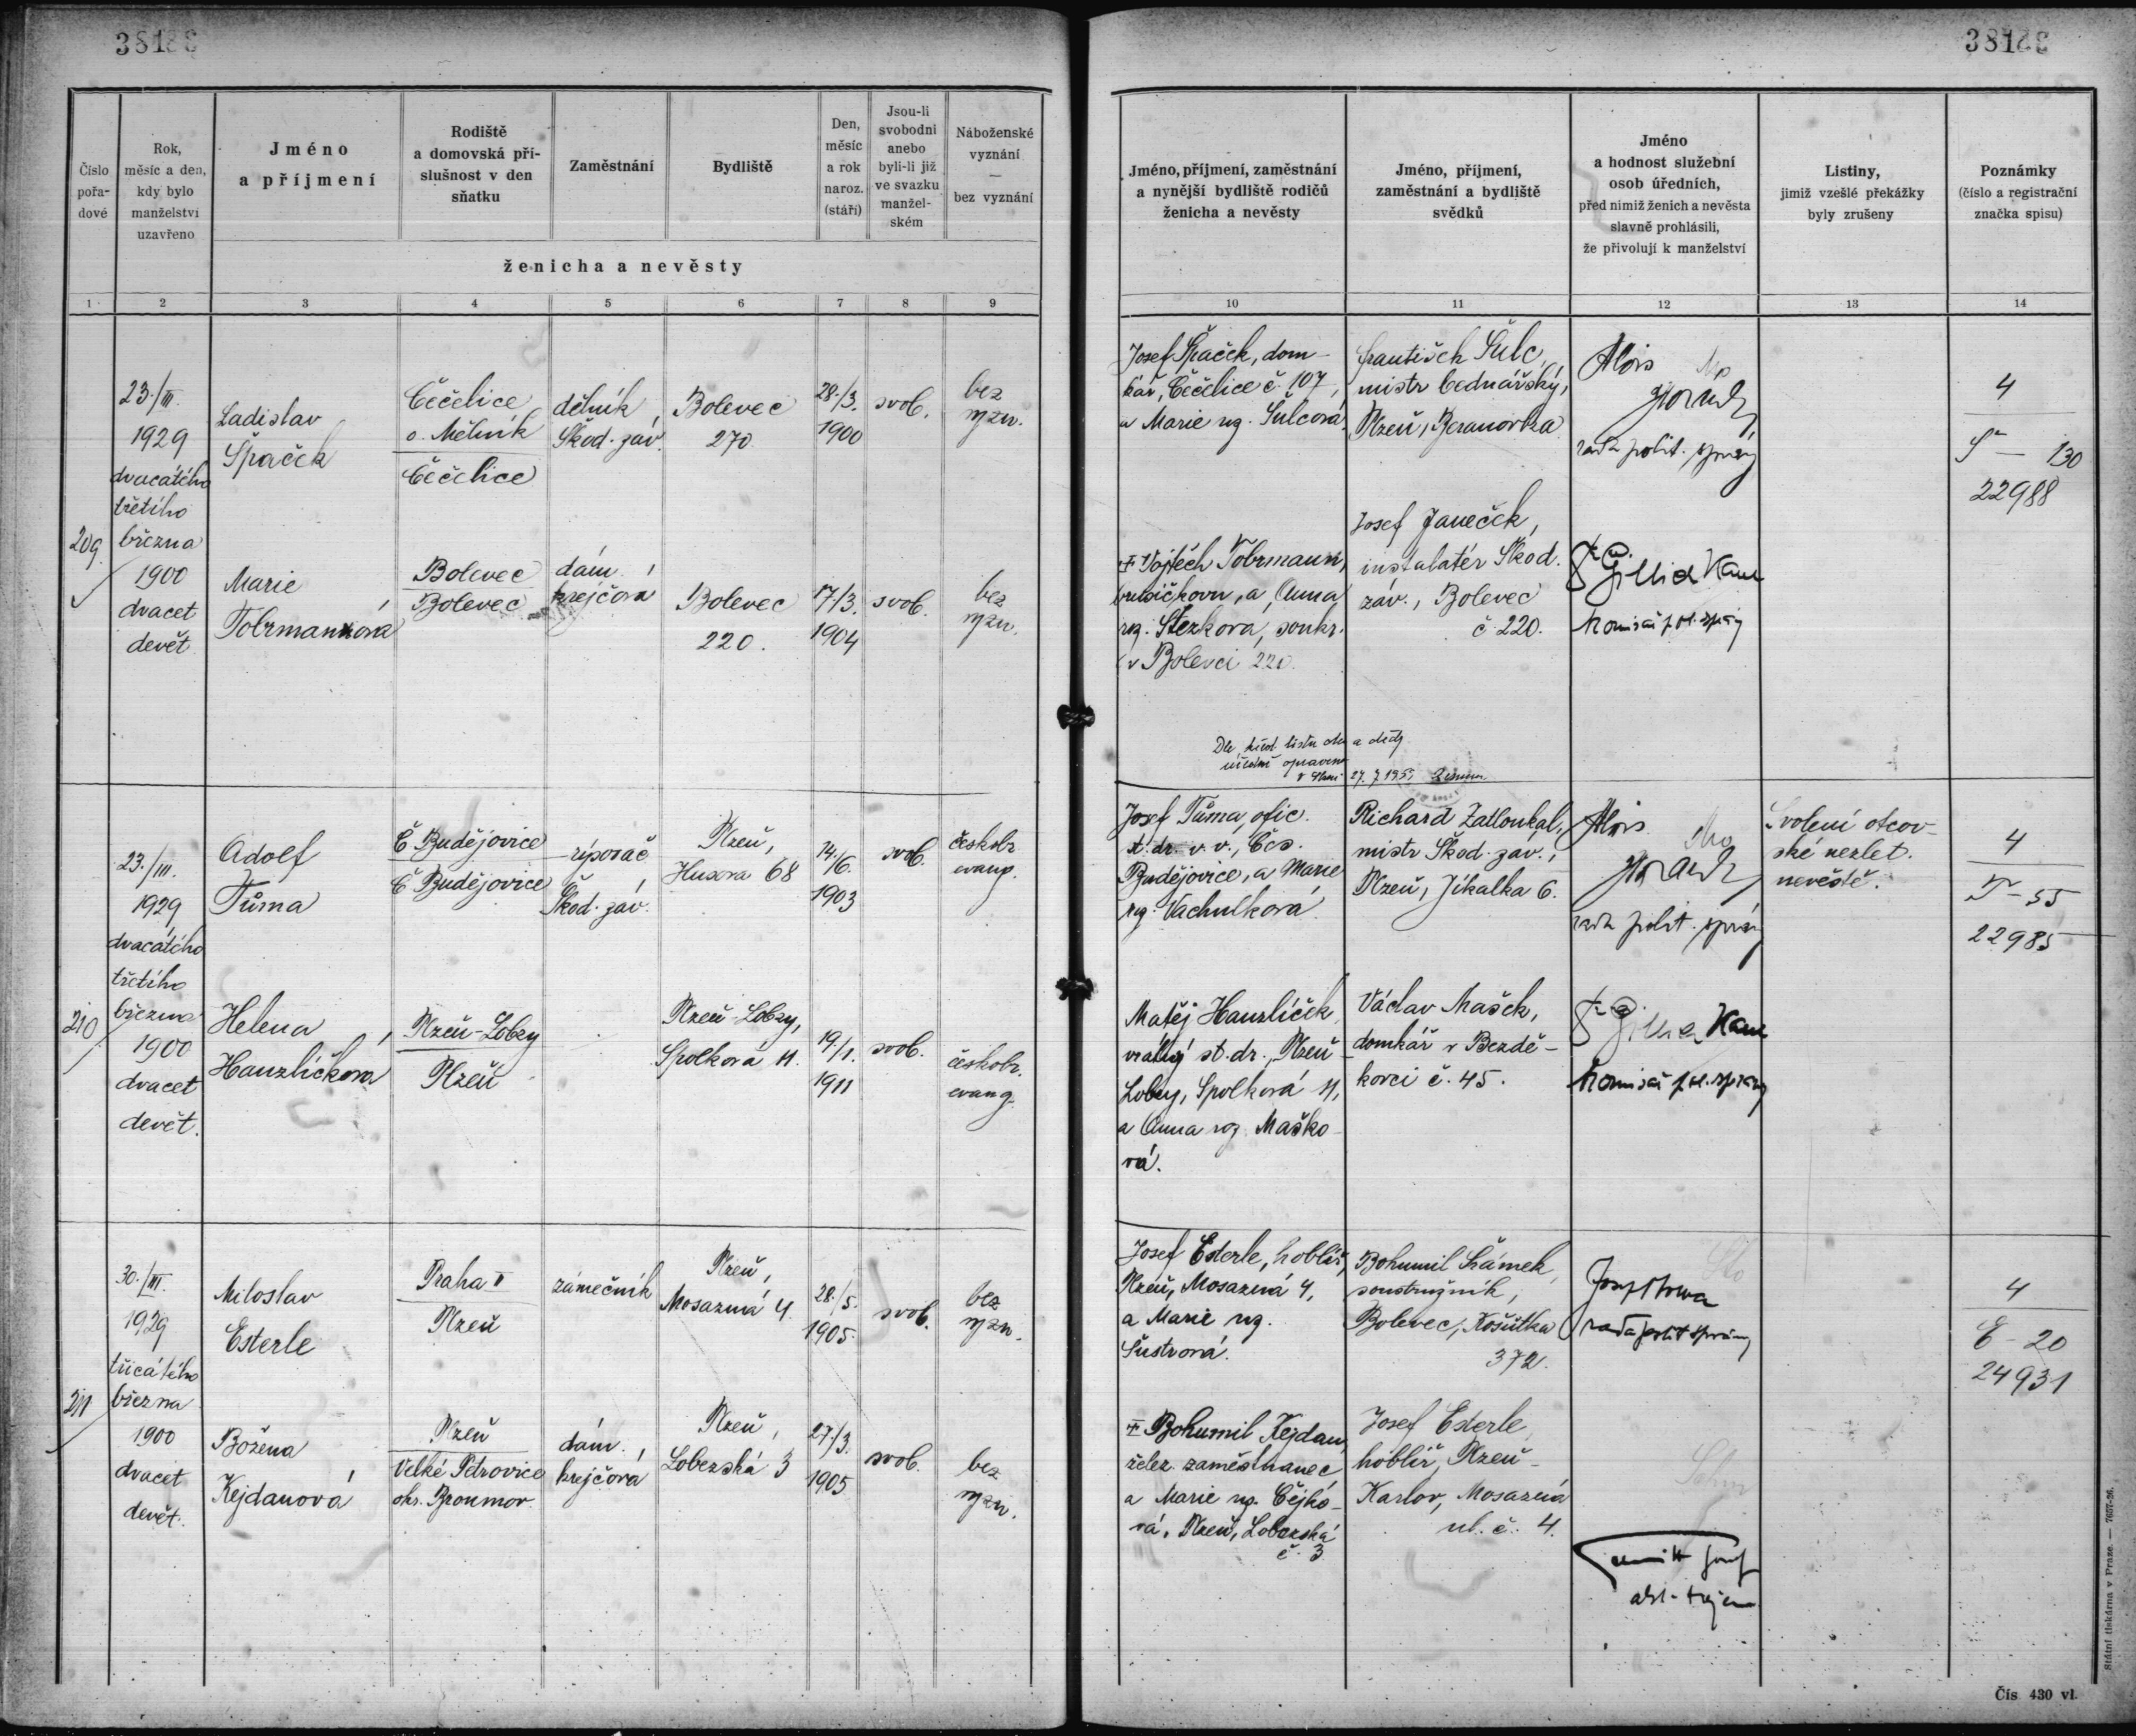 38183
38183
Číslo
pořa-
dové
Rok,
měsíc a den,
kdy bylo
manželství
uzavřeno
Jméno
a příjmení
Rodiště
a domovská pří-
slušnost v den
sňatku
Zaměstnání
Bydliště
Den,
měsíc
a rok
naroz.
(stáří)
Jsou-li
svobodni
anebo
byli-li již
ve svazku
manžel-
ském
Náboženské
vyznání
—
bez vyznání
ženicha a nevěsty
Jméno, příjmení, zaměstnání
a nynější bydliště rodičů
ženicha a nevěsty
Jméno, příjmení,
zaměstnání a bydliště
svědků
Jméno
a hodnost služební
osob úředních,
před nimiž ženich a nevěsta
slavně prohlásili,
že přivolují k manželství
Listiny,
jimiž vzešlé překážky
byly zrušeny
Poznámky
(číslo a registrační
značka spisu)
1 2 3 4 5 6 7 8 9 10 11 12 13 14
209
23./III.
1929
dvacátého
třetího
března
1900
dvacet
devět
Ladislav
Špaček
Čečelice
o. Mělník
Čečelice
dělník
Škod. záv.
Bolevec
270.
28./3.
1900
svob.
bez
vyzn.
Josef Špaček, dom-
kář, Čečelice č. 107,
a Marie roz. Šulcová
František Šulc,
mistr bednářský,
Plzeň, Beranovka
Alois
rada polit. správy
4
Š — 130
22988
Marie
Tobrmannová
Bolevec
Bolevec
dám.
krejčová
Bolevec
220.
17/3.
1904
svob.
bez
vyzn.
Vojtěch Tobrmann,
a Anna
roz. Stezková, soukr.
v Bolevci 220.
Josef Janeček,
instalatér Škod.
záv., Bolevec
č. 220.
komisař pol. správy
210
23./III.
1929
dvacátého
třetího
března
1900
dvacet
devět.
Adolf
Tůma
Č Budějovice
Č Budějovice
rýsovač
Škod. záv.
Plzeň,
Husova 68
14./6.
1903
svob.
českobr.
evang.
Josef Tůma, ofic.
st. dr. v. v., Čes.
Budějovice, a Marie
roz. Vachulková
Richard Zatloukal,
mistr Škod. záv.,
Plzeň, Jikalka 6.
Alois
rada polit. správy
Svolení otcov-
ské nezlet.
nevěstě.
4
T — 55
22985
Helena
Hanzlíčková
Plzeň-Lobzy
Plzeň
Plzeň-Lobzy,
Spolková 11.
19./1.
1911
svob.
českobr.
evang.
Matěj Hanzlíček,
vrátný st. dr., Plzeň-
Lobzy, Spolková 11,
a Anna roz. Maško-
vá.
Václav Mašek,
domkář v Bezdě-
kovci č. 45.
komisař pol. správy
211
30./III.
1929
třicátého
března
1900
dvacet
devět.
Miloslav
Esterle
Praha II
Plzeň
zámečník
Plzeň,
Mosazná 4.
28./5.
1905.
svob.
bez
vyzn.
Josef Esterle, hoblíř,
Plzeň, Mosazná 4,
a Marie roz.
Šustrová.
Bohumil Šámek,
soustružník,
Bolevec, Košutka
372.
rada polit správy
4
E - 20
24931
Božena
Kejdanová
Plzeň
Velké Petrovice
okr. Broumov.
dám.
krejčová
Plzeň,
Lobezská 3
27./3.
1905
svob.
bez
vyzn.
Bohumil Kejdan,
želez. zaměstnanec
a Marie roz. Čejko-
vá, Plzeň, Lobezská
č. 3
Josef Esterle,
hoblíř, Plzeň-
Karlov, Mosazná
ul. č. 4.
Státní tiskárna v Praze. — 7657-26.
Čís. 430 vl.